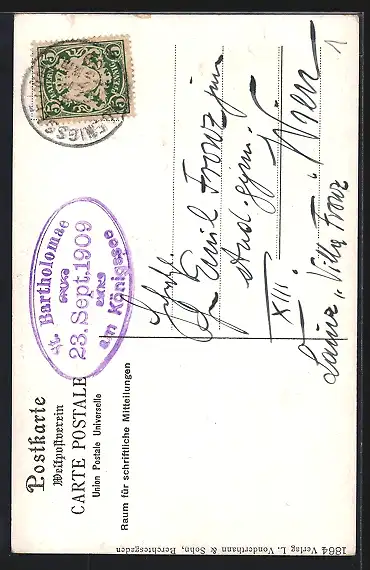 Postkarte
Weltpostverein
CARTE POSTALE
Union Postale Universelle
Raum für schriftliche Mitteilungen
St. Bartholomae
23. Sept. 1909
am Königssee
5 BAYERN 5
Emil Franz jun
stud. gym.
XIII. Wien
Lainz „Villa Franz
1864 Verlag L. Vonderthann & Sohn, Berchtesgaden
1